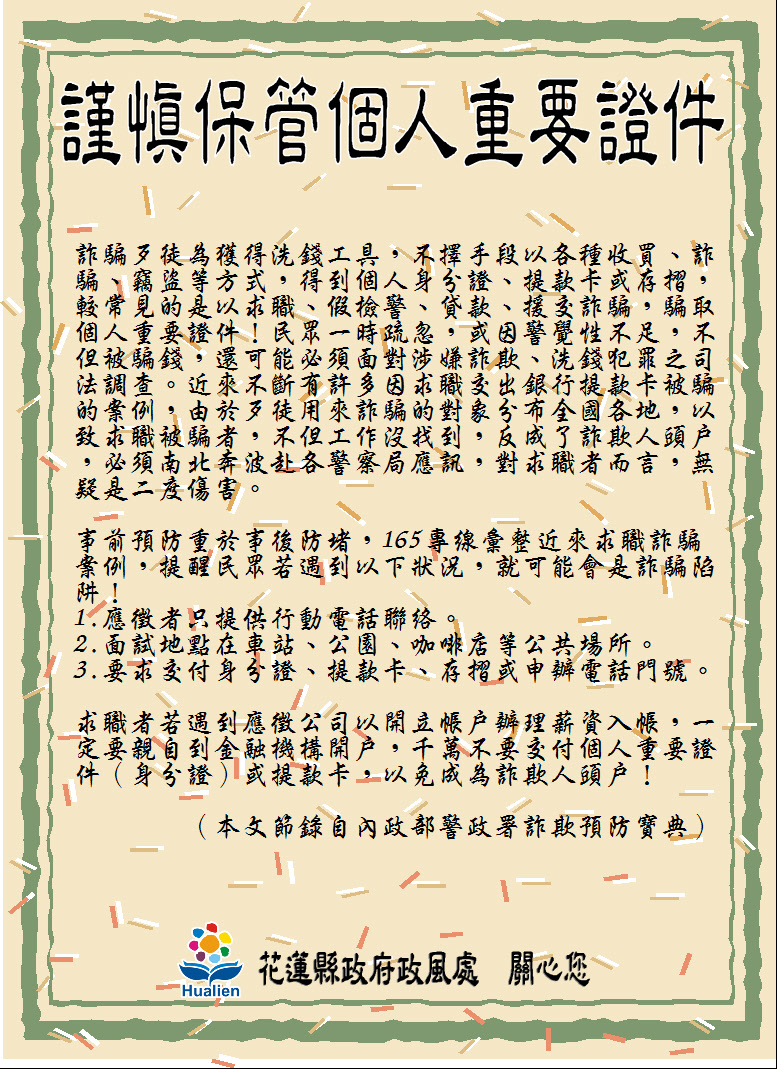 謹慎保管個人重要證件
詐騙歹徒為獲得洗錢工具，不擇手段以各種收買、詐
騙、竊盜等方式，得到個人身分證、提款卡或存摺，
較常見的是以求職、假檢警、貸款、援交詐騙，騙取
個人重要證件！民眾一時疏忽，或因警覺性不足，不
但被騙錢，還可能必須面對涉嫌詐欺、洗錢犯罪之司
法調查。近來不斷有許多因求職交出銀行提款卡被騙
的案例，由於歹徒用來詐騙的對象分布全國各地，以
致求職被騙者，不但工作沒找到，反成了詐欺人頭戶
，必須南北奔波赴各警察局應訊，對求職者而言，無
疑是二度傷害。
事前預防重於事後防堵，165專線彙整近來求職詐騙
案例，提醒民眾若遇到以下狀況，就可能會是詐騙陷
阱！
1.應徵者只提供行動電話聯絡。
2.面試地點在車站、公園、咖啡店等公共場所。
3.要求交付身分證、提款卡、存摺或申辦電話門號。
求職者若遇到應徵公司以開立帳戶辦理薪資入帳，一
定要親自到金融機構開戶，千萬不要交付個人重要證
件（身分證）或提款卡，以免成為詐欺人頭戶！
（本文節錄自內政部警政署詐欺預防寶典）
Hualien
花蓮縣政府政風處　關心您